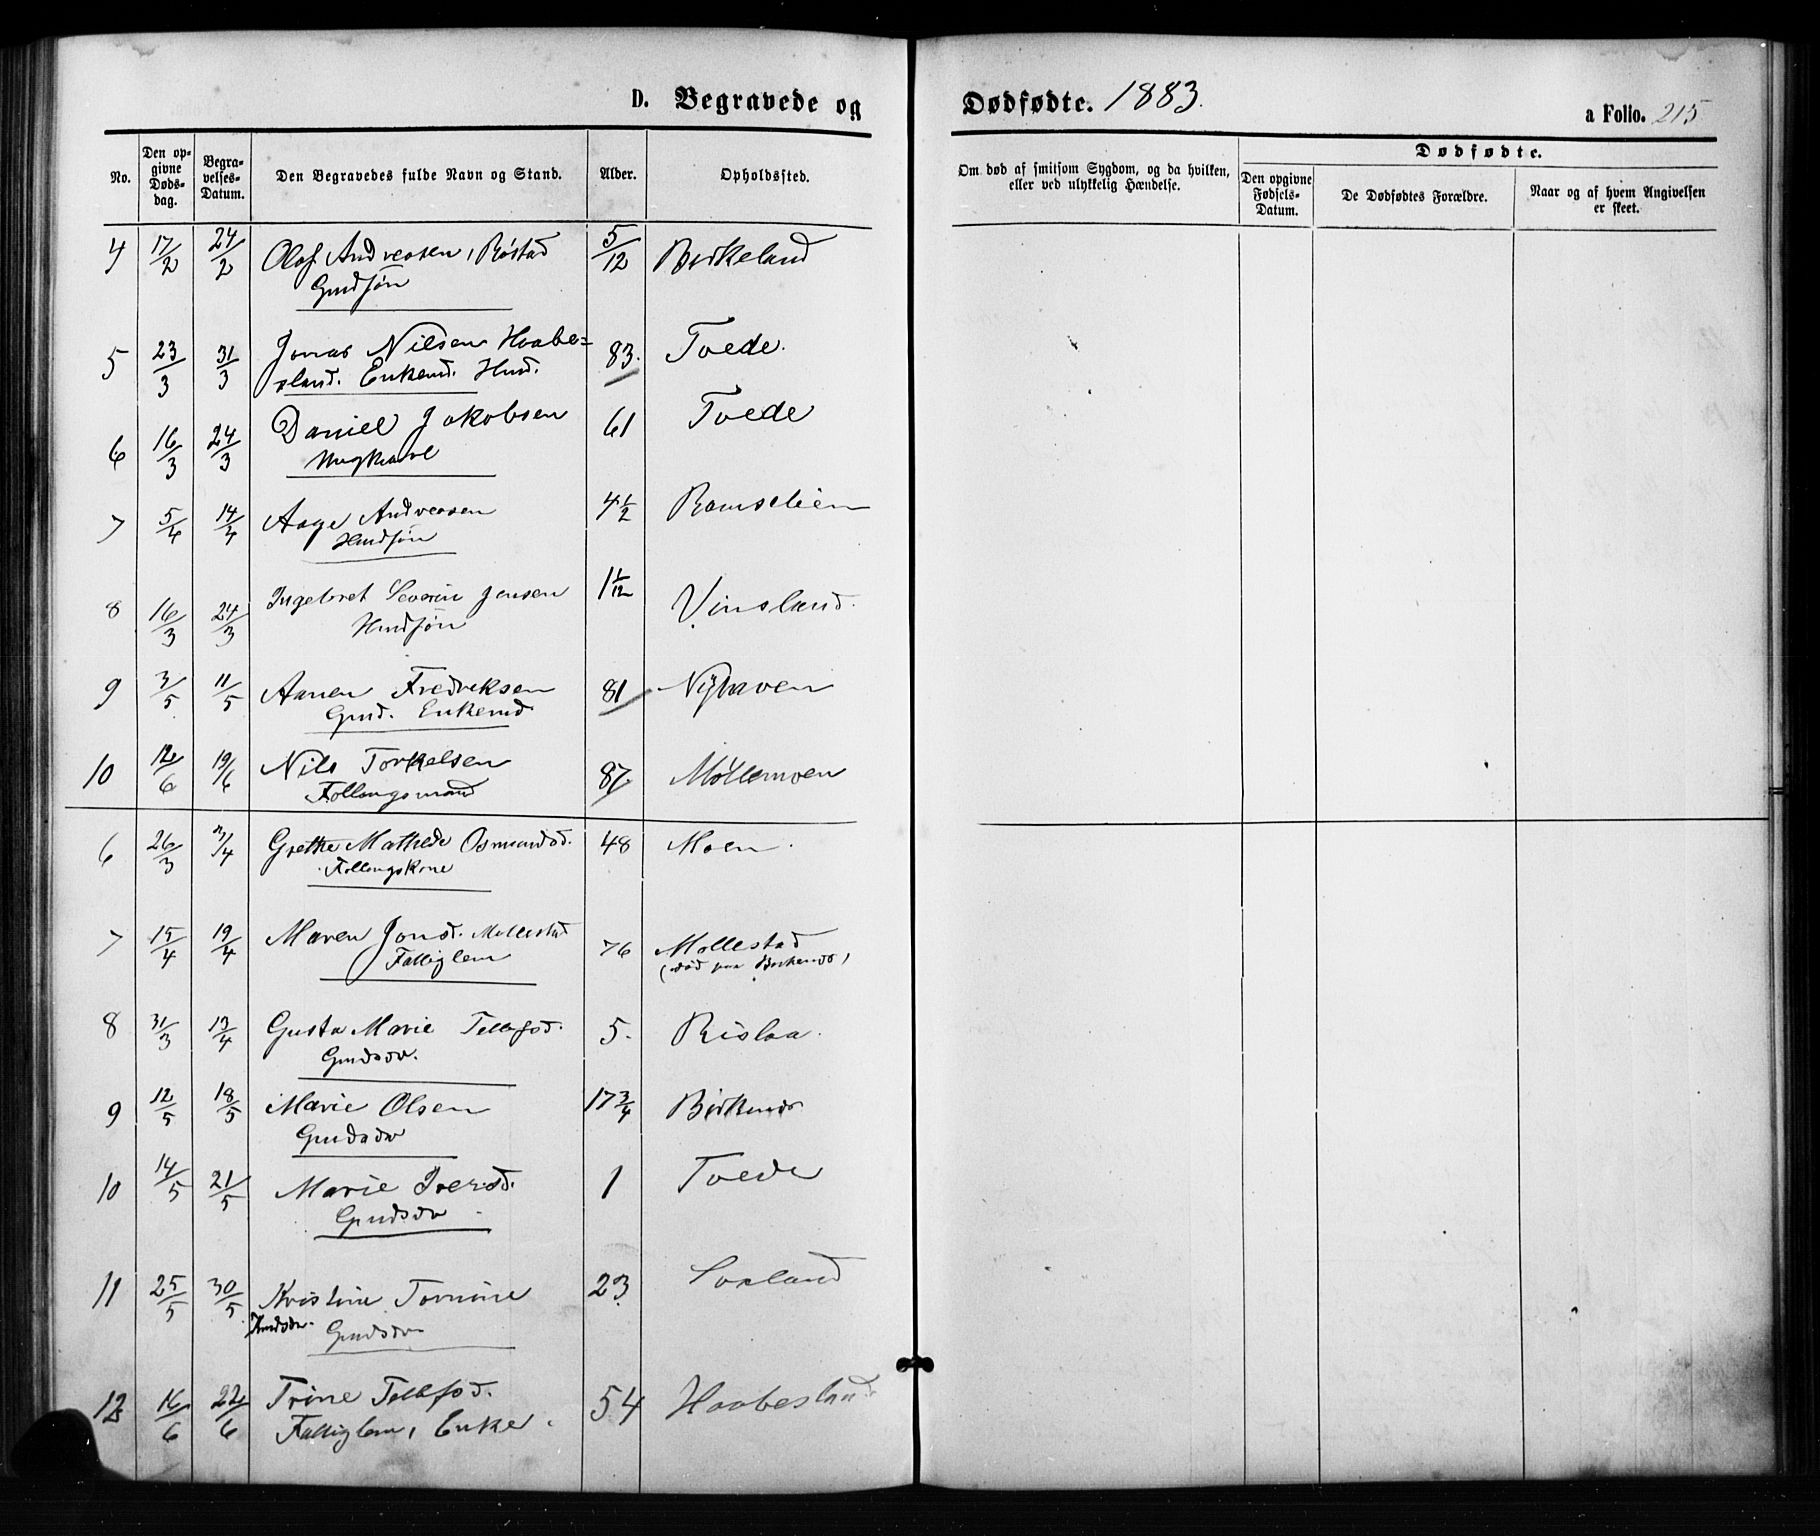 D. Begravede og Dødfødte. 1883.
a Folio. 215
No.
Den opgivne Døds-dag.
Begravelses-Datum.
Den Begravedes fulde Navn og Stand.
Alder.
Opholdssted.
Om død af smitsom Sygdom, og da hvilken, eller ved ulykkelig Hændelse.
Dødfødte.
Den opgivne Fødsels-Datum.
De Dødfødtes Forældre.
Naar og af hvem Angivelsen er skeet.
4 17/2 24/2 Olaf Andreasen, Røstad 5/12 Birkeland
Gmdsøn
5 23/3 31/3 Jonas Nilsen Haabe= 83. Tvede.
sland. Enkemd. Hmd.
6 16/3 24/3 Daniel Jakobsen 61 Tvede
Ungkarl
7 5/4 14/4 Aage Andreasen 4 1/2 Ramseleien
Hmdsøn
8 16/3 24/3 Ingebret Severin Jensen 1 1/12 Vinsland.
Hmdsøn
9 3/5 11/5 Aanen Fredriksen 81 Nyhaven
Gmd. Enkemd
10 12/6 19/6 Nils Torkelsen 87 Møllemoen
Follougsmand
6 26/3 3/4 Grethe Mathilde Osmundsd. 48 Moen.
Follougskone
7 15/4 19/4 Maren Jonsd. Mollestad 76 Mollestad
Fattiglem (død paa Birkenes)
8 31/3 13/4 Gusta Marie Tellefsd. 5. Rislaa.
Gmdsdr.
9 12/5 18/5 Marie Olsen 17 3/4 Birkenes
Gmdsdr
10 14/5 21/5 Marie Iversd. 1 Tvede
Gmdsdr
11 25/5 30/5 Kristine Tomine 23 Soxland
Hmdsdr. Gmdsdr
12 16/6 22/6 Trine Tellefsd. 54 Haabesland
Fattiglem, Enke.